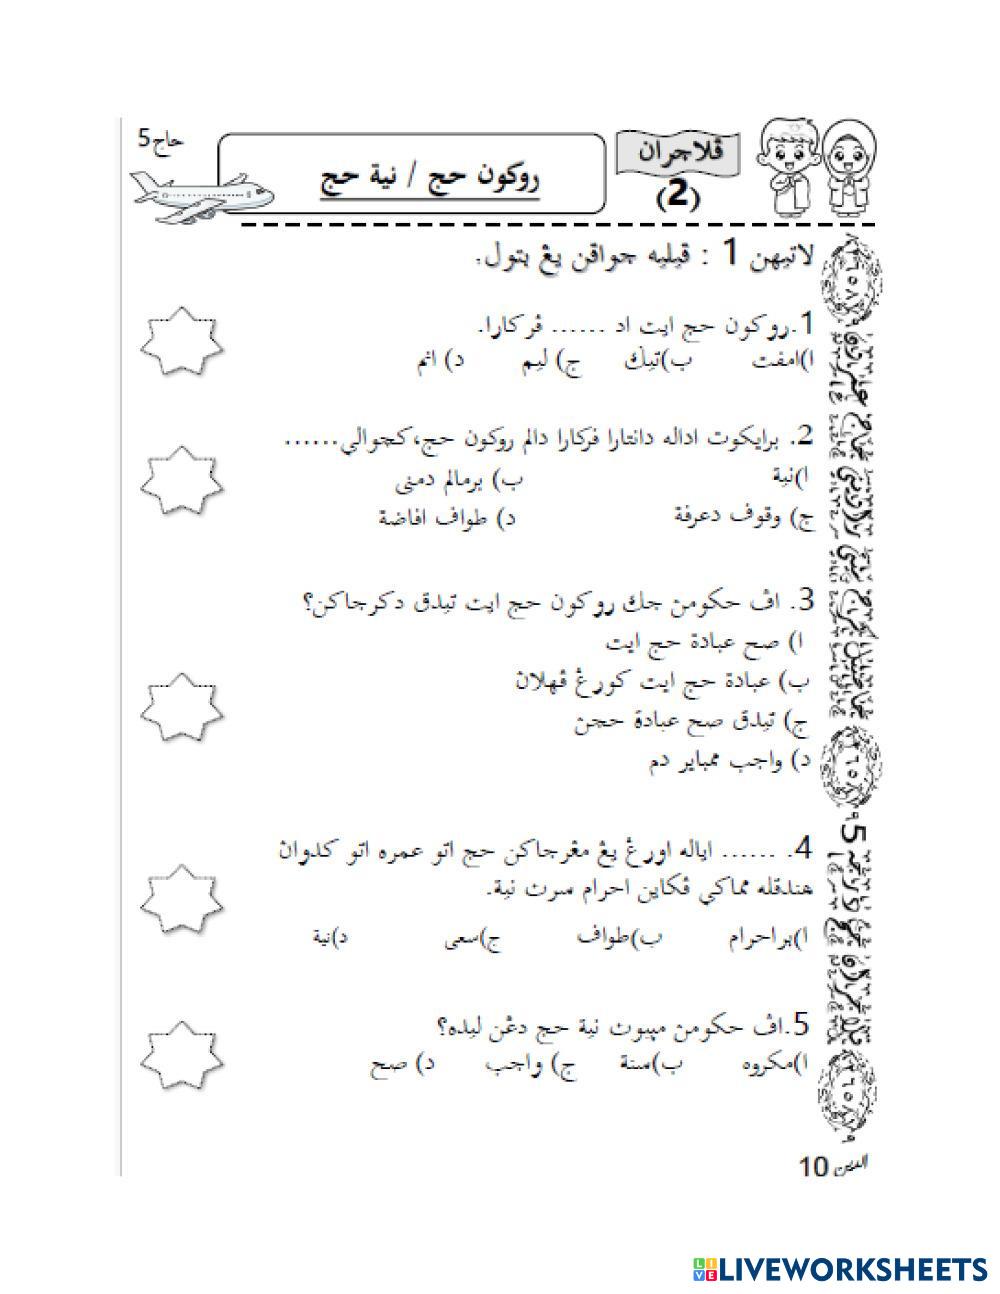 حاج5
روكون حج / نية حج
ڤلاجران
(2)
لاتيهن 1 : ڤيليه جواڤن يڠ بتول.
1.روكون حج ايت اد ...... ڤركارا.
ا)امڤت ب)تيݢ ج) ليم د) انم
2. برايكوت اداله دانتارا ڤركارا دالم روكون حج،كچوالي......
ا)نية ب) برمالم دمنى
ج) وقوف دعرفة د) طواف افاضة
3. اڤ حكومڽ جك روكون حج ايت تيدق دكرجاكن؟
ا) صح عبادة حج ايت
ب) عبادة حج ايت كورڠ ڤهلاڽ
ج) تيدق صح عبادة حجڽ
د) واجب ممباير دم
4. ...... اياله اورڠ يڠ مڠرجاكن حج اتو عمره اتو كدواڽ
هندقله مماكي ڤكاين احرام سرت نية.
ا)براحرام ب)طواف ج)سعى د)نية
5.اڤ حكومڽ مڽبوت نية حج دڠن ليده؟
ا)مكروه ب)سنة ج) واجب د) صح
10
LIVEWORKSHEETS